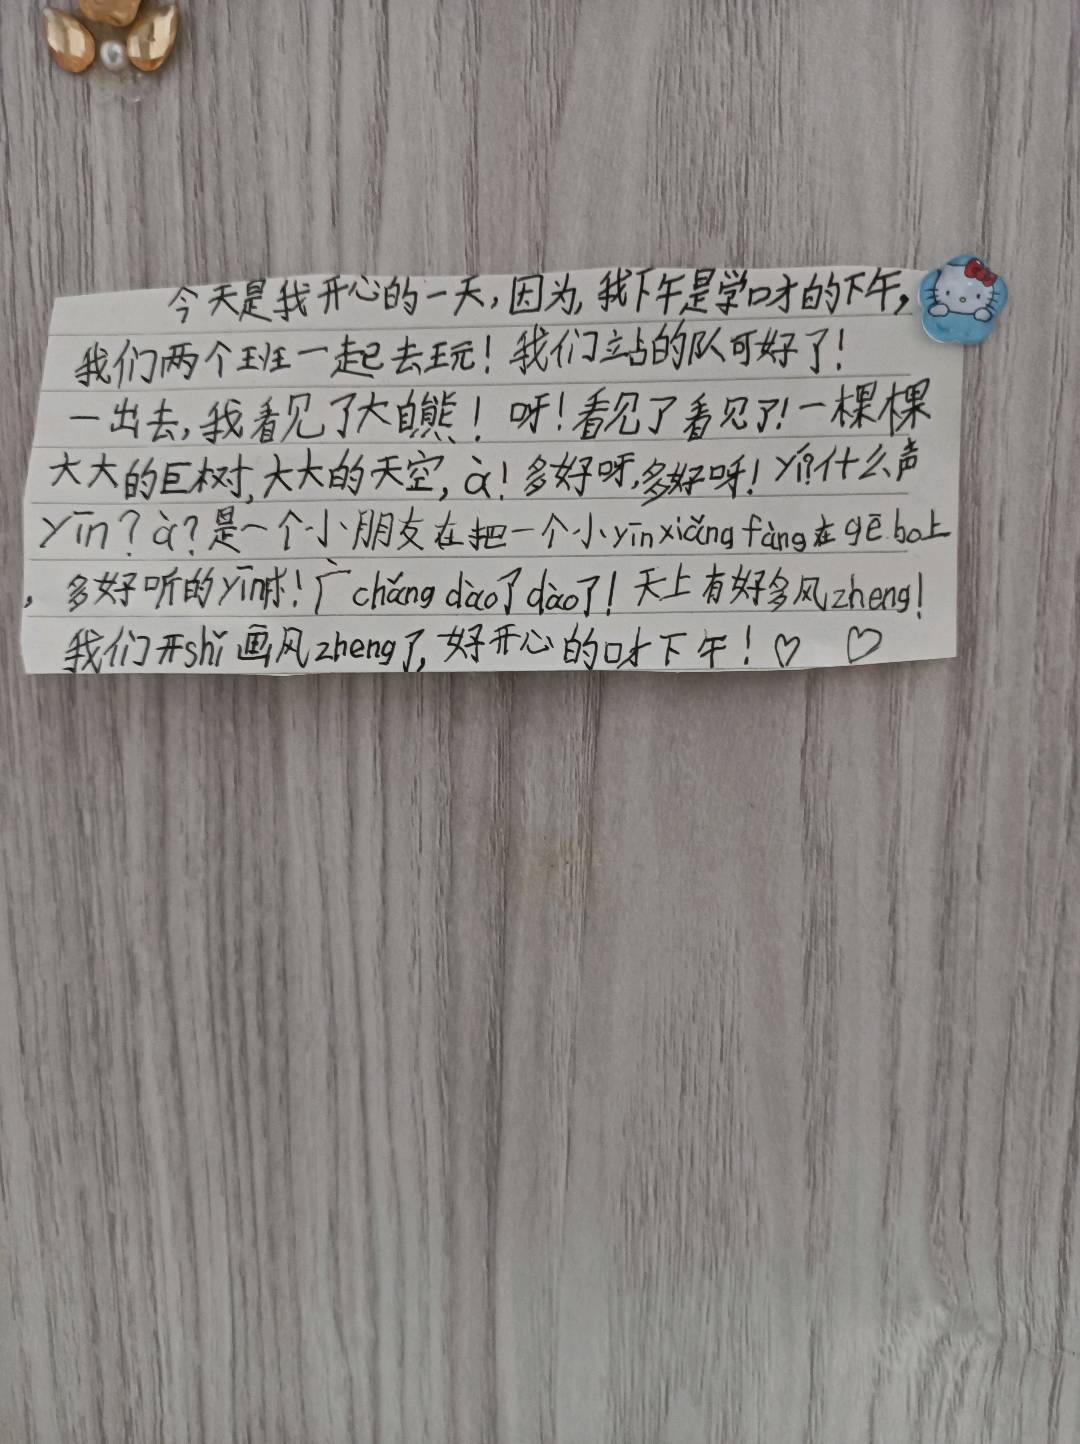 今天是我开心的一天,因为,我下午是学口才的下午,
我们两个班一起去玩！我们站的队可好了！
一出去,我看见了大自熊！呀！看见了看见了!一棵棵
大大的巨树,大大的天空,à！多好呀,多好呀！yí?什么声
yīn？à？是一个小朋友在把一个小yīnxiǎng fàng在gē bo上
,多好听的yīn！广chǎng dào了dào了！天上有好多风zheng！
我们开shǐ画风zheng了,好开心的口才下午！♡ ♡